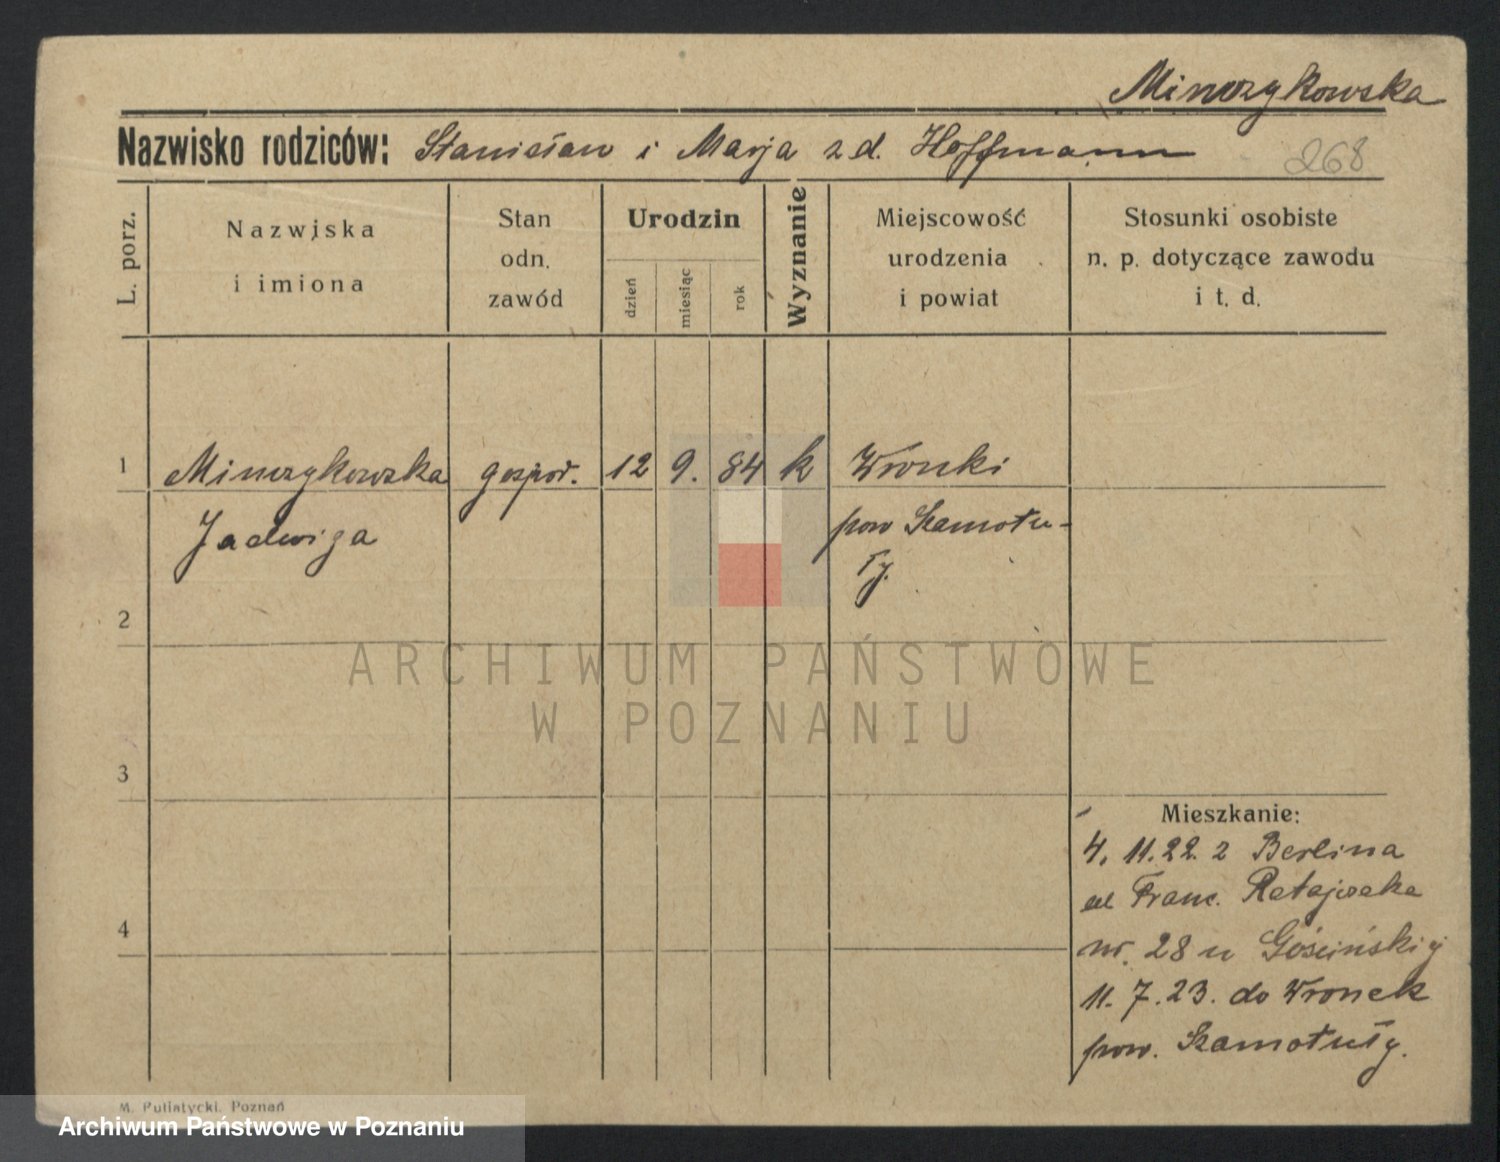 Minczykowska
Nazwisko rodziców: Stanisław i Marja z d. Hoffmann
268
L. porz.
Nazwiska
i imiona
Stan
odn.
zawód
Urodzin
dzień
miesiąc
rok
Wyznanie
Miejscowość
urodzenia
i powiat
Stosunki osobiste
n. p. dotyczące zawodu
i t. d.
1 Minczykowska gospod. 12 9. 84 k Wronki
Jadwiga pow Szamotu-
ły.
2
ARCHIWUM PAŃSTWOWE
W POZNANIU
3
Mieszkanie:
4. 11. 22. z Berlina
ul Franc. Ratajczaka
4
nr. 28 u Gościńskiej
11. 7. 23. do Wronek
pow. Szamotuły.
M. Putiatycki. Poznań
Archiwum Państwowe w Poznaniu